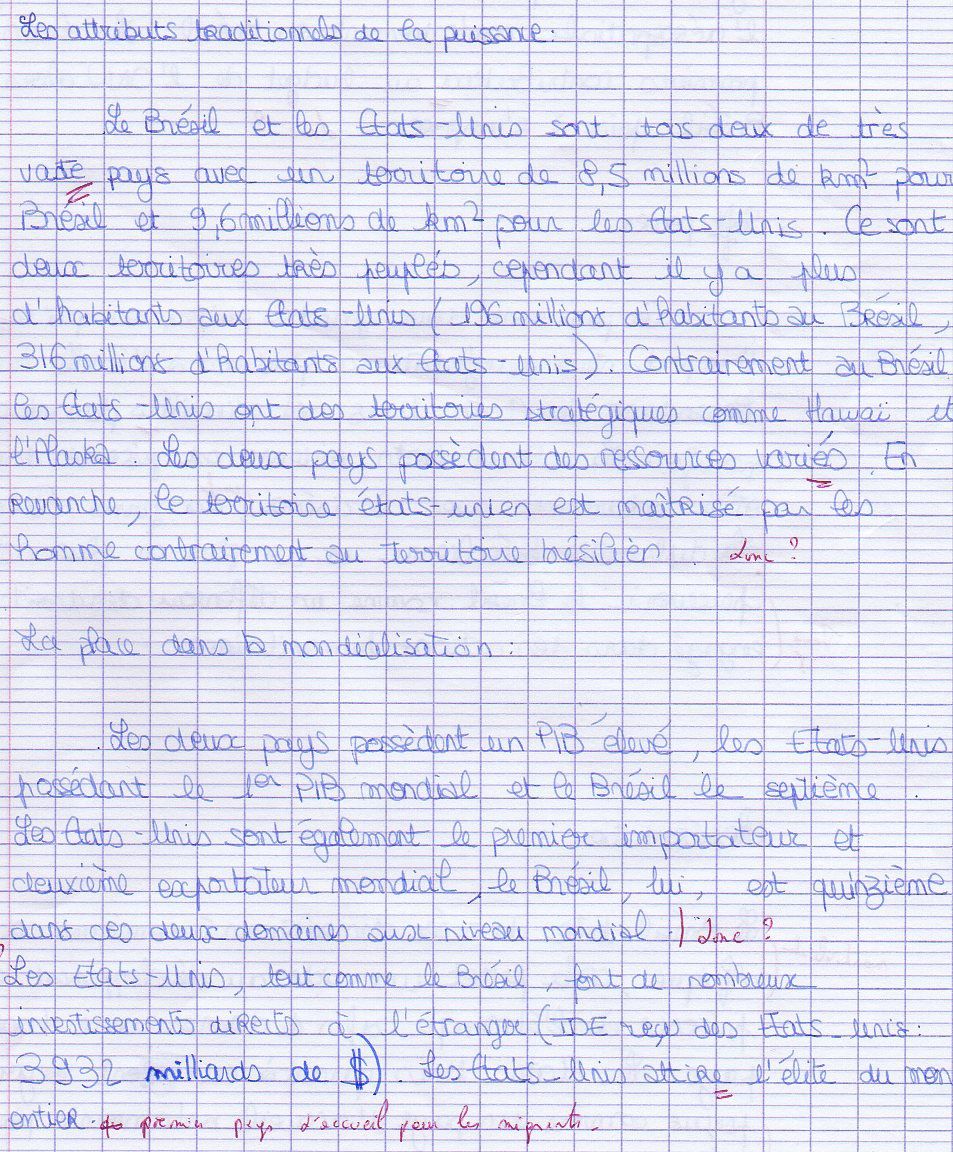 Les attributs traditionnels de la puissance:
Le Brésil et les Etats-Unis sont tous deux de très
vaste pays avec un territoire de 8,5 millions de km² pour
Brésil et 9,6 millions de km² pour les Etats-Unis. Ce sont
deux territoires très peuplés, cependant il y a plus
d'habitants aux Etats-Unis (196 millions d'habitants au Brésil,
316 millions d'habitants aux Etats-Unis). Contrairement au Brésil
les Etats-Unis ont des territoires stratégiques comme Hawaï et
l'Alaska. Les deux pays possèdent des ressources variés. En
revanche, le territoire états-unien est maîtrisé par les
homme contrairement au territoire brésilien. donc ?
La place dans la mondialisation :
Les deux pays possèdent un PIB élevé, les Etats-Unis
possédant le 1er PIB mondial et le Brésil le septième.
Les Etats-Unis sont également le premier importateur et
deuxième exportateur mondial, le Brésil, lui, est quinzième
dans ces deux domaines aux niveau mondial. donc ?
Les Etats-Unis, tout comme le Brésil, font de nombreux
investissements directs à l'étranger (IDE reçu des Etats-unis:
3932 milliards de $). Les Etats-Unis attire l'élite du mon
entier. premier pays d'accueil pour les migrants.